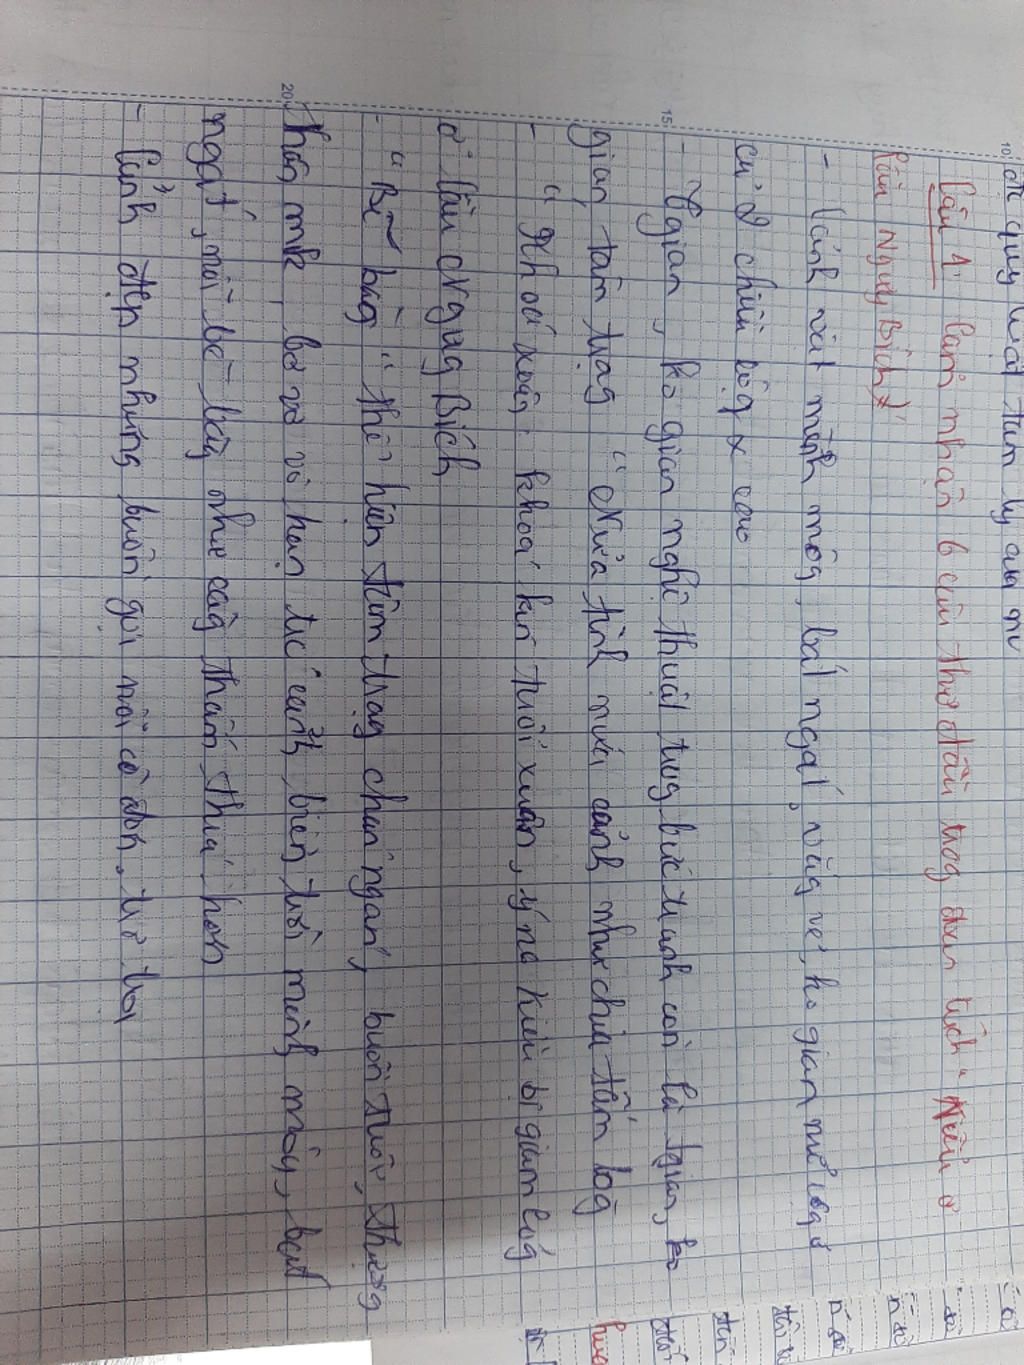 quy luật tâm lý của nv
Câu 1: Cảm nhận 6 câu thơ đầu trog đoạn trích "Kiều ở
lầu Ngưng Bích"
- Cảnh vật mênh môg, bát ngát, vắng vẻ, ko gian mở rộg ở
cả 2 chiều rộg x cao
- Tgian, ko gian nghệ thuật trog bức tranh còn là tgian, ko
gian, tâm trạg "Nửa tình nửa cảnh như chia tấm lòg
- "Khoá xuân: khoá kín tuổi xuân, ý ns Kiều bị giam lỏg
ở lầu Ngưng Bích
- "Bẽ bàg" thể hiện tâm trạg chán ngán, buồn tủi, thươg
thân mk, bơ vơ vô hạn trc cảnh biển trời mênh môg, bát
ngát, nỗi bẽ bàg như càg thấm thía hơn
- Cảnh đẹp nhưng buồn gợi nỗi cô đơn, trơ trọi